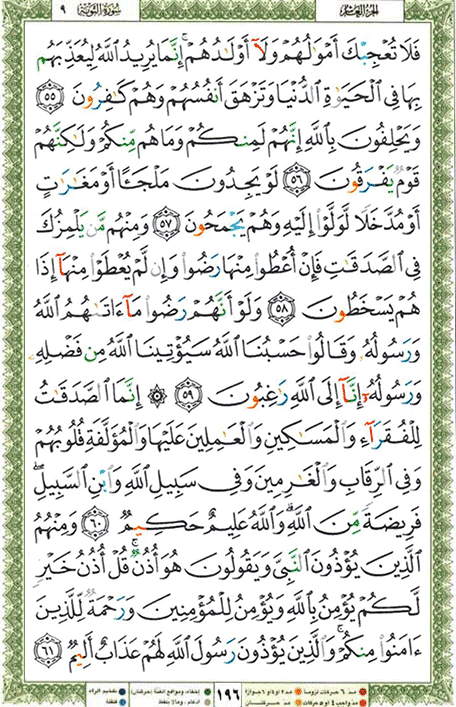 الجزء العاشر سورة التوبة ٩
فَلَا تُعْجِبْكَ أَمْوَٰلُهُمْ وَلَآ أَوْلَٰدُهُمْ ۚ إِنَّمَا يُرِيدُ ٱللَّهُ لِيُعَذِّبَهُم
بِهَا فِى ٱلْحَيَوٰةِ ٱلدُّنْيَا وَتَزْهَقَ أَنفُسُهُمْ وَهُمْ كَٰفِرُونَ ٥٥
وَيَحْلِفُونَ بِٱللَّهِ إِنَّهُمْ لَمِنكُمْ وَمَا هُم مِّنكُمْ وَلَٰكِنَّهُمْ
قَوْمٌ يَفْرَقُونَ ٥٦ لَوْ يَجِدُونَ مَلْجَـًٔا أَوْ مَغَٰرَٰتٍ
أَوْ مُدَّخَلًا لَّوَلَّوْا۟ إِلَيْهِ وَهُمْ يَجْمَحُونَ ٥٧ وَمِنْهُم مَّن يَلْمِزُكَ
فِى ٱلصَّدَقَٰتِ فَإِنْ أُعْطُوا۟ مِنْهَا رَضُوا۟ وَإِن لَّمْ يُعْطَوْا۟ مِنْهَآ إِذَا
هُمْ يَسْخَطُونَ ٥٨ وَلَوْ أَنَّهُمْ رَضُوا۟ مَآ ءَاتَىٰهُمُ ٱللَّهُ
وَرَسُولُهُۥ وَقَالُوا۟ حَسْبُنَا ٱللَّهُ سَيُؤْتِينَا ٱللَّهُ مِن فَضْلِهِۦ
وَرَسُولُهُۥٓ إِنَّآ إِلَى ٱللَّهِ رَٰغِبُونَ ٥٩ ۞ إِنَّمَا ٱلصَّدَقَٰتُ
لِلْفُقَرَآءِ وَٱلْمَسَٰكِينِ وَٱلْعَٰمِلِينَ عَلَيْهَا وَٱلْمُؤَلَّفَةِ قُلُوبُهُمْ
وَفِى ٱلرِّقَابِ وَٱلْغَٰرِمِينَ وَفِى سَبِيلِ ٱللَّهِ وَٱبْنِ ٱلسَّبِيلِ ۖ
فَرِيضَةً مِّنَ ٱللَّهِ ۗ وَٱللَّهُ عَلِيمٌ حَكِيمٌ ٦٠ وَمِنْهُمُ
ٱلَّذِينَ يُؤْذُونَ ٱلنَّبِىَّ وَيَقُولُونَ هُوَ أُذُنٌ ۚ قُلْ أُذُنُ خَيْرٍ
لَّكُمْ يُؤْمِنُ بِٱللَّهِ وَيُؤْمِنُ لِلْمُؤْمِنِينَ وَرَحْمَةٌ لِّلَّذِينَ
ءَامَنُوا۟ مِنكُمْ ۚ وَٱلَّذِينَ يُؤْذُونَ رَسُولَ ٱللَّهِ لَهُمْ عَذَابٌ أَلِيمٌ ٦١
١٩٦